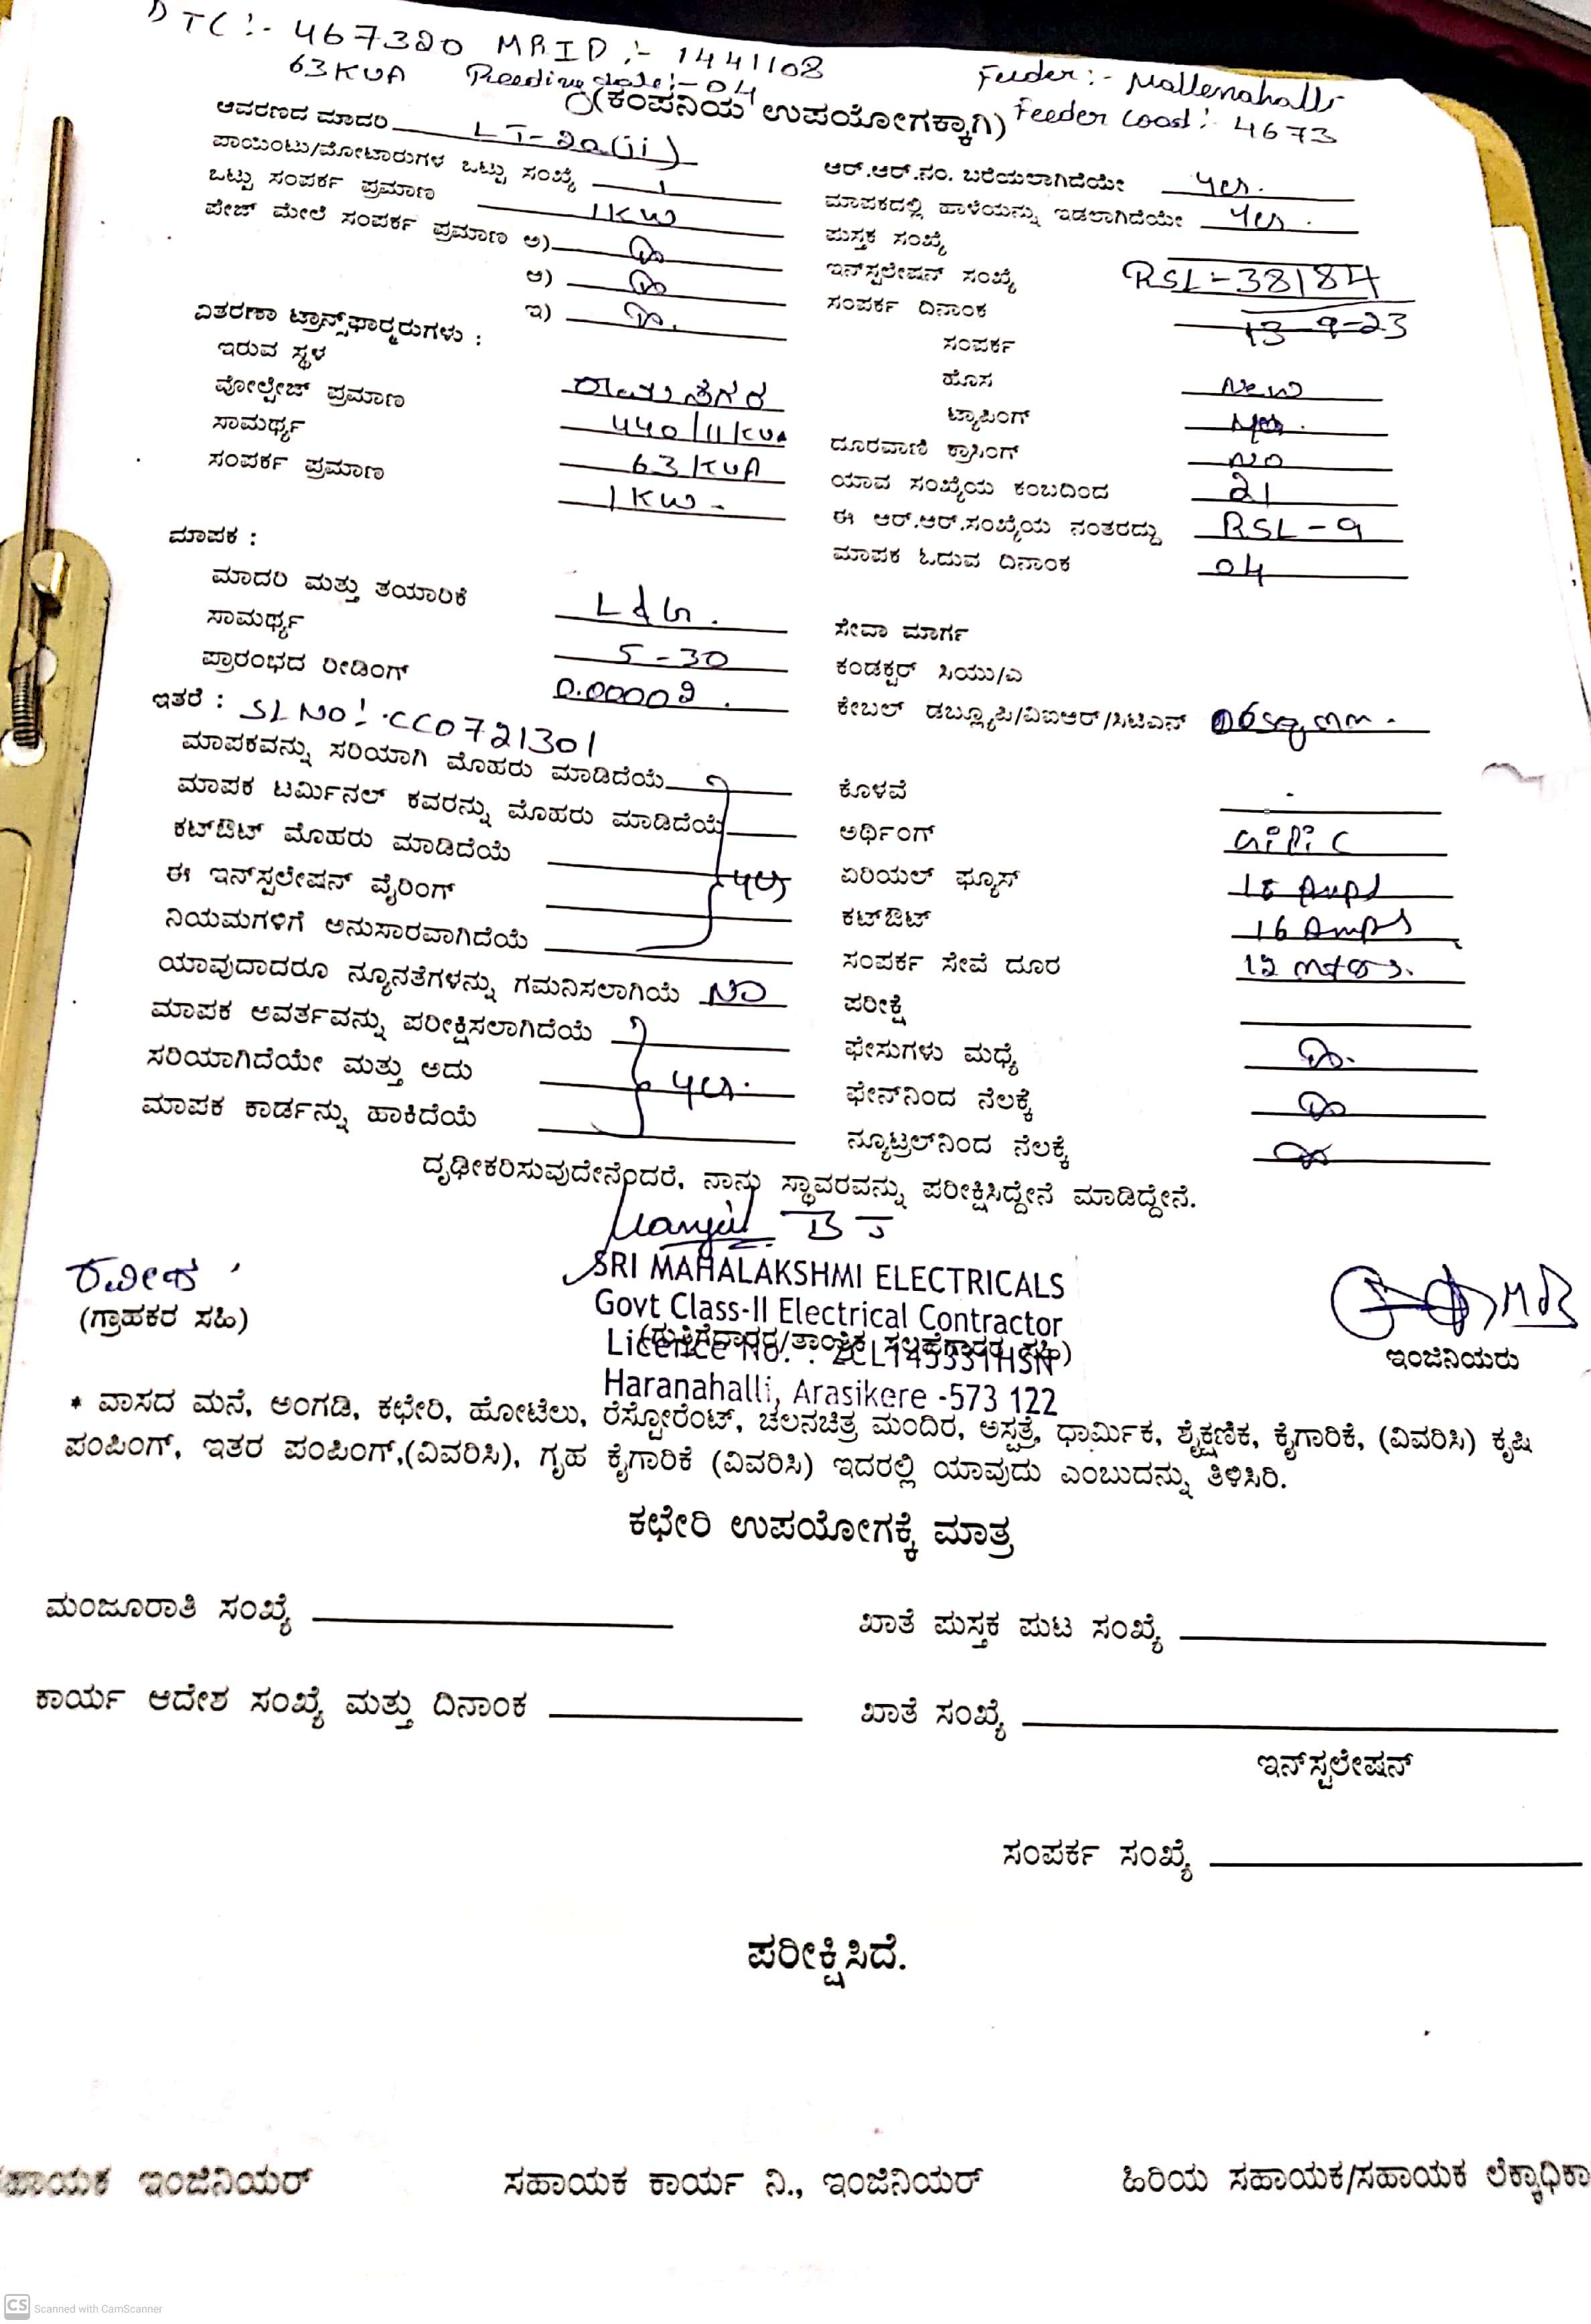 DTC :- 467320 MRID :- 1441108
63KVA Reeding date :- 04 Feeder :- Mallenahalli
(ಕಂಪನಿಯ ಉಪಯೋಗಕ್ಕಾಗಿ) Feeder coad :- 4673
ಆವರಣದ ಮಾದರಿ LT-2a(ii)
ಪಾಯಿಂಟು/ಮೋಟಾರುಗಳ ಒಟ್ಟು ಸಂಖ್ಯೆ 1
ಒಟ್ಟು ಸಂಪರ್ಕ ಪ್ರಮಾಣ 1KW
ಪೇಜ್ ಮೇಲೆ ಸಂಪರ್ಕ ಪ್ರಮಾಣ ಅ)
ಆ)
ಇ)
ವಿತರಣಾ ಟ್ರಾನ್ಸ್‌ಫಾರ್‍ಮರುಗಳು :
ಇರುವ ಸ್ಥಳ
ವೋಲ್ಟೇಜ್ ಪ್ರಮಾಣ 440/11KVA
ಸಾಮರ್ಥ್ಯ 63KVA
ಸಂಪರ್ಕ ಪ್ರಮಾಣ 1KW
ಮಾಪಕ :
ಮಾದರಿ ಮತ್ತು ತಯಾರಿಕೆ L&G.
ಸಾಮರ್ಥ್ಯ 5-30
ಪ್ರಾರಂಭದ ರೀಡಿಂಗ್ 0.00002
ಇತರೆ : SL NO :- CC0721301
ಮಾಪಕವನ್ನು ಸರಿಯಾಗಿ ಮೊಹರು ಮಾಡಿದೆಯೆ
ಮಾಪಕ ಟರ್ಮಿನಲ್ ಕವರನ್ನು ಮೊಹರು ಮಾಡಿದೆಯೆ
ಕಟ್‌ಔಟ್ ಮೊಹರು ಮಾಡಿದೆಯೆ
ಈ ಇನ್‌ಸ್ಪಲೇಷನ್ ವೈರಿಂಗ್ yes
ನಿಯಮಗಳಿಗೆ ಅನುಸಾರವಾಗಿದೆಯೆ
ಯಾವುದಾದರೂ ನ್ಯೂನತೆಗಳನ್ನು ಗಮನಿಸಲಾಗಿಯೆ NO
ಮಾಪಕ ಅವರ್ತವನ್ನು ಪರೀಕ್ಷಿಸಲಾಗಿದೆಯೆ
ಸರಿಯಾಗಿದೆಯೇ ಮತ್ತು ಅದು yes.
ಮಾಪಕ ಕಾರ್ಡನ್ನು ಹಾಕಿದೆಯೆ
ಆರ್.ಆರ್.ನಂ. ಬರೆಯಲಾಗಿದೆಯೇ yes.
ಮಾಪಕದಲ್ಲಿ ಹಾಳೆಯನ್ನು ಇಡಲಾಗಿದೆಯೇ yes.
ಪುಸ್ತಕ ಸಂಖ್ಯೆ
ಇನ್‌ಸ್ಪಲೇಷನ್ ಸಂಖ್ಯೆ RSL-38184
ಸಂಪರ್ಕ ದಿನಾಂಕ 13-9-23
ಸಂಪರ್ಕ
ಹೊಸ New
ಟ್ಯಾಪಿಂಗ್
ದೂರವಾಣಿ ಕ್ರಾಸಿಂಗ್ NO
ಯಾವ ಸಂಖ್ಯೆಯ ಕಂಬದಿಂದ 21
ಈ ಆರ್.ಆರ್.ಸಂಖ್ಯೆಯ ನಂತರದ್ದು RSL-9
ಮಾಪಕ ಓದುವ ದಿನಾಂಕ 04
ಸೇವಾ ಮಾರ್ಗ
ಕಂಡಕ್ಟರ್ ಸಿಯು/ಎ
ಕೇಬಲ್ ಡಬ್ಲ್ಯೂಪಿ/ವಿಐಆರ್/ಸಿಟಿಎನ್
ಕೊಳವೆ
ಅರ್ಥಿಂಗ್
ಏರಿಯಲ್ ಫ್ಯೂಸ್ 16 Amps
ಕಟ್‌ಔಟ್ 16 Amps
ಸಂಪರ್ಕ ಸೇವೆ ದೂರ 12
ಪರೀಕ್ಷಿ
ಫೇಸುಗಳು ಮಧ್ಯೆ
ಫೇನ್‌ನಿಂದ ನೆಲಕ್ಕೆ
ನ್ಯೂಟ್ರಲ್‌ನಿಂದ ನೆಲಕ್ಕೆ
ದೃಢೀಕರಿಸುವುದೇನೆಂದರೆ, ನಾನು ಸ್ಥಾವರವನ್ನು ಪರೀಕ್ಷಿಸಿದ್ದೇನೆ ಮಾಡಿದ್ದೇನೆ.
ರವೀಶ
(ಗ್ರಾಹಕರ ಸಹಿ)
SRI MAHALAKSHMI ELECTRICALS
Govt Class-II Electrical Contractor
(ಗುತ್ತಿಗೆದಾರರ/ತಾಂತ್ರಿಕ ಸಲಹೆಗಾರರ ಸಹಿ)
Licence No. : 2CL145331HSN
Haranahalli, Arasikere -573 122
ಇಂಜಿನಿಯರು
* ವಾಸದ ಮನೆ, ಅಂಗಡಿ, ಕಛೇರಿ, ಹೋಟೆಲು, ರೆಸ್ಟೋರೆಂಟ್, ಚಲನಚಿತ್ರ ಮಂದಿರ, ಅಸ್ಪತ್ರೆ, ಧಾರ್ಮಿಕ, ಶೈಕ್ಷಣಿಕ, ಕೈಗಾರಿಕೆ, (ವಿವರಿಸಿ) ಕೃಷಿ
ಪಂಪಿಂಗ್, ಇತರ ಪಂಪಿಂಗ್,(ವಿವರಿಸಿ), ಗೃಹ ಕೈಗಾರಿಕೆ (ವಿವರಿಸಿ) ಇದರಲ್ಲಿ ಯಾವುದು ಎಂಬುದನ್ನು ತಿಳಿಸಿರಿ.
ಕಛೇರಿ ಉಪಯೋಗಕ್ಕೆ ಮಾತ್ರ
ಮಂಜೂರಾತಿ ಸಂಖ್ಯೆ ಖಾತೆ ಪುಸ್ತಕ ಪುಟ ಸಂಖ್ಯೆ
ಕಾರ್ಯ ಆದೇಶ ಸಂಖ್ಯೆ ಮತ್ತು ದಿನಾಂಕ ಖಾತೆ ಸಂಖ್ಯೆ
ಇನ್‌ಸ್ಟಲೇಷನ್
ಸಂಪರ್ಕ ಸಂಖ್ಯೆ
ಪರೀಕ್ಷಿಸಿದೆ.
ಹಾಯಕ ಇಂಜಿನಿಯರ್ ಸಹಾಯಕ ಕಾರ್ಯ ನಿ., ಇಂಜಿನಿಯರ್ ಹಿರಿಯ ಸಹಾಯಕ/ಸಹಾಯಕ ಲೆಕ್ಕಾಧಿಕಾ
CS Scanned with CamScanner